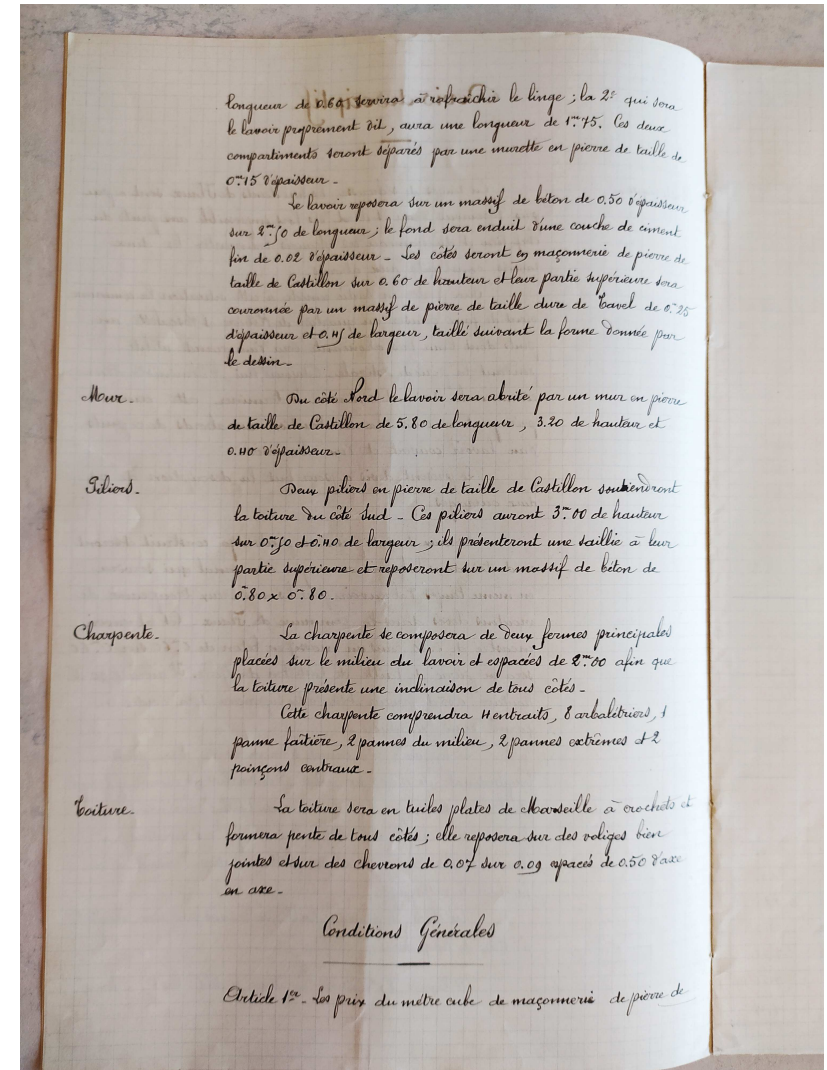 longueur de 0.60 servira à rafraîchir le linge ; la 2e qui sera
le lavoir proprement dit, aura une longueur de 1m75. Ces deux
compartiments seront séparés par une murette en pierre de taille de
0m15 d'épaisseur.
Le lavoir reposera sur un massif de béton de 0.50 d'épaisseur
sur 2m50 de longueur ; le fond sera enduit d'une couche de ciment
fin de 0.02 d'épaisseur - Les côtés seront en maçonnerie de pierre de
taille de Castillon sur 0.60 de hauteur et leur partie supérieure sera
couronnée par un massif de pierre de taille dure de Tavel de 0m25
d'épaisseur et 0.45 de largeur, taillé suivant la forme donnée par
le dessin -
Mur. Du côté Nord le lavoir sera abrité par un mur en pierre
de taille de Castillon de 5.80 de longueur, 3.20 de hauteur et
0.40 d'épaisseur -
Piliers. Deux piliers en pierre de taille de Castillon soutiendront
la toiture du côté Sud - Ces piliers auront 3m00 de hauteur
sur 0m50 et 0m40 de largeur ; ils présenteront une saillie à leur
partie supérieure et reposeront sur un massif de béton de
0m80 x 0m80.
Charpente. La charpente se composera de deux fermes principales
placées sur le milieu du lavoir et espacées de 2m00 afin que
la toiture présente une inclinaison de tous côtés -
Cette charpente comprendra 4 entraits, 8 arbalétriers, 1
panne faîtière, 2 pannes du milieu, 2 pannes extrêmes et 2
poinçons centraux -
Toiture. La toiture sera en tuiles plates de Marseille à crochets et
formera pente de tous côtés ; elle reposera sur des voliges bien
jointes et sur des chevrons de 0,07 sur 0.09 espacés de 0.50 d'axe
en axe -
Conditions Générales
Article 1er - Les prix du mètre cube de maçonnerie de pierre de